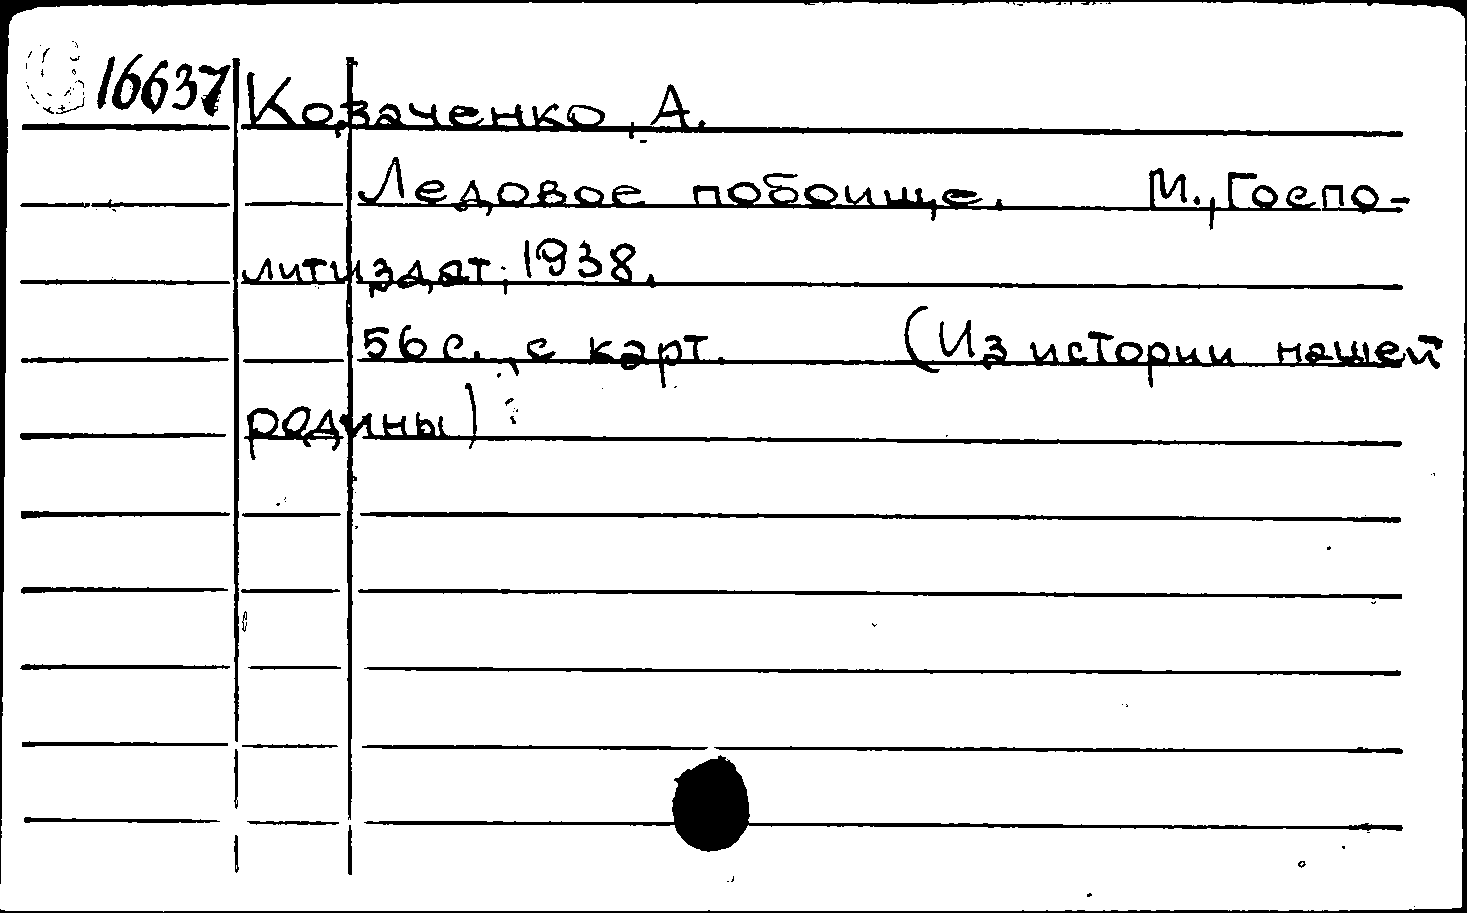 16637 Козаченко, А.
Ледовое побоище. М., Госпо-
литиздат, 1938.
56 с., с карт. (Из истории нашей
родины)